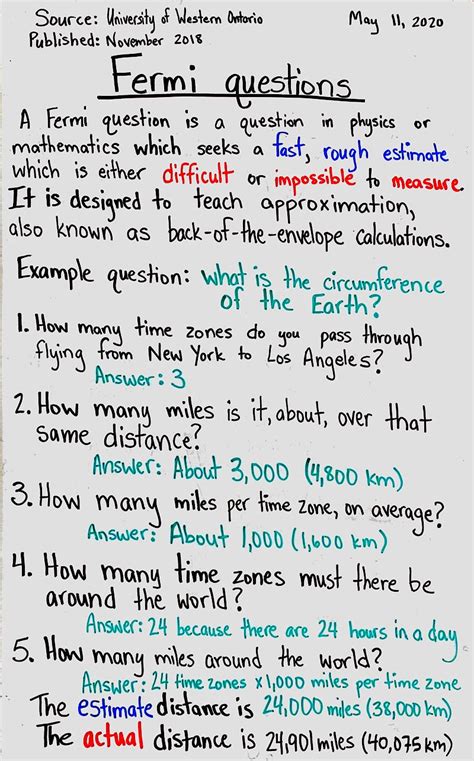 Source: University of Western Ontario
May 11, 2020
Published: November 2018
Fermi questions
A Fermi question is a question in physics or
mathematics which seeks a fast, rough estimate
which is either difficult or impossible to measure.
It is designed to teach approximation,
also known as back-of-the-envelope calculations.
Example question: what is the circumference
of the Earth?
1. How many time zones do you pass through
flying from New York to Los Angeles?
Answer: 3
2. How many miles is it, about, over that
same distance?
Answer: About 3,000 (4,800 km)
3. How many miles per time zone, on average?
Answer: About 1,000 (1,600 km)
4. How many time zones must there be
around the world?
Answer: 24 because there are 24 hours in a day
5. How many miles around the world?
Answer: 24 time zones x 1,000 miles per time zone
The estimate distance is 24,000 miles (38,000 km)
The actual distance is 24,901 miles (40,075 km)